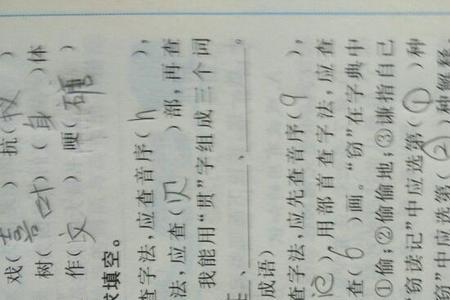 戏(喜) 抗(议)
树(叶) (身)体
作(文) 硬( )
填空。
查字法,应查音序(h),
法,应查(贝)部,再查
我能用“”字组成三个同
、 、 。
成语)
查字法,应先查音序(q),
)用部首查字法,应查
查(6)画。“窃”在字典中
①偷;②偷偷地;③谦指自己
窃读记”中应选第(①)种
窃”中应选第(②)种解释